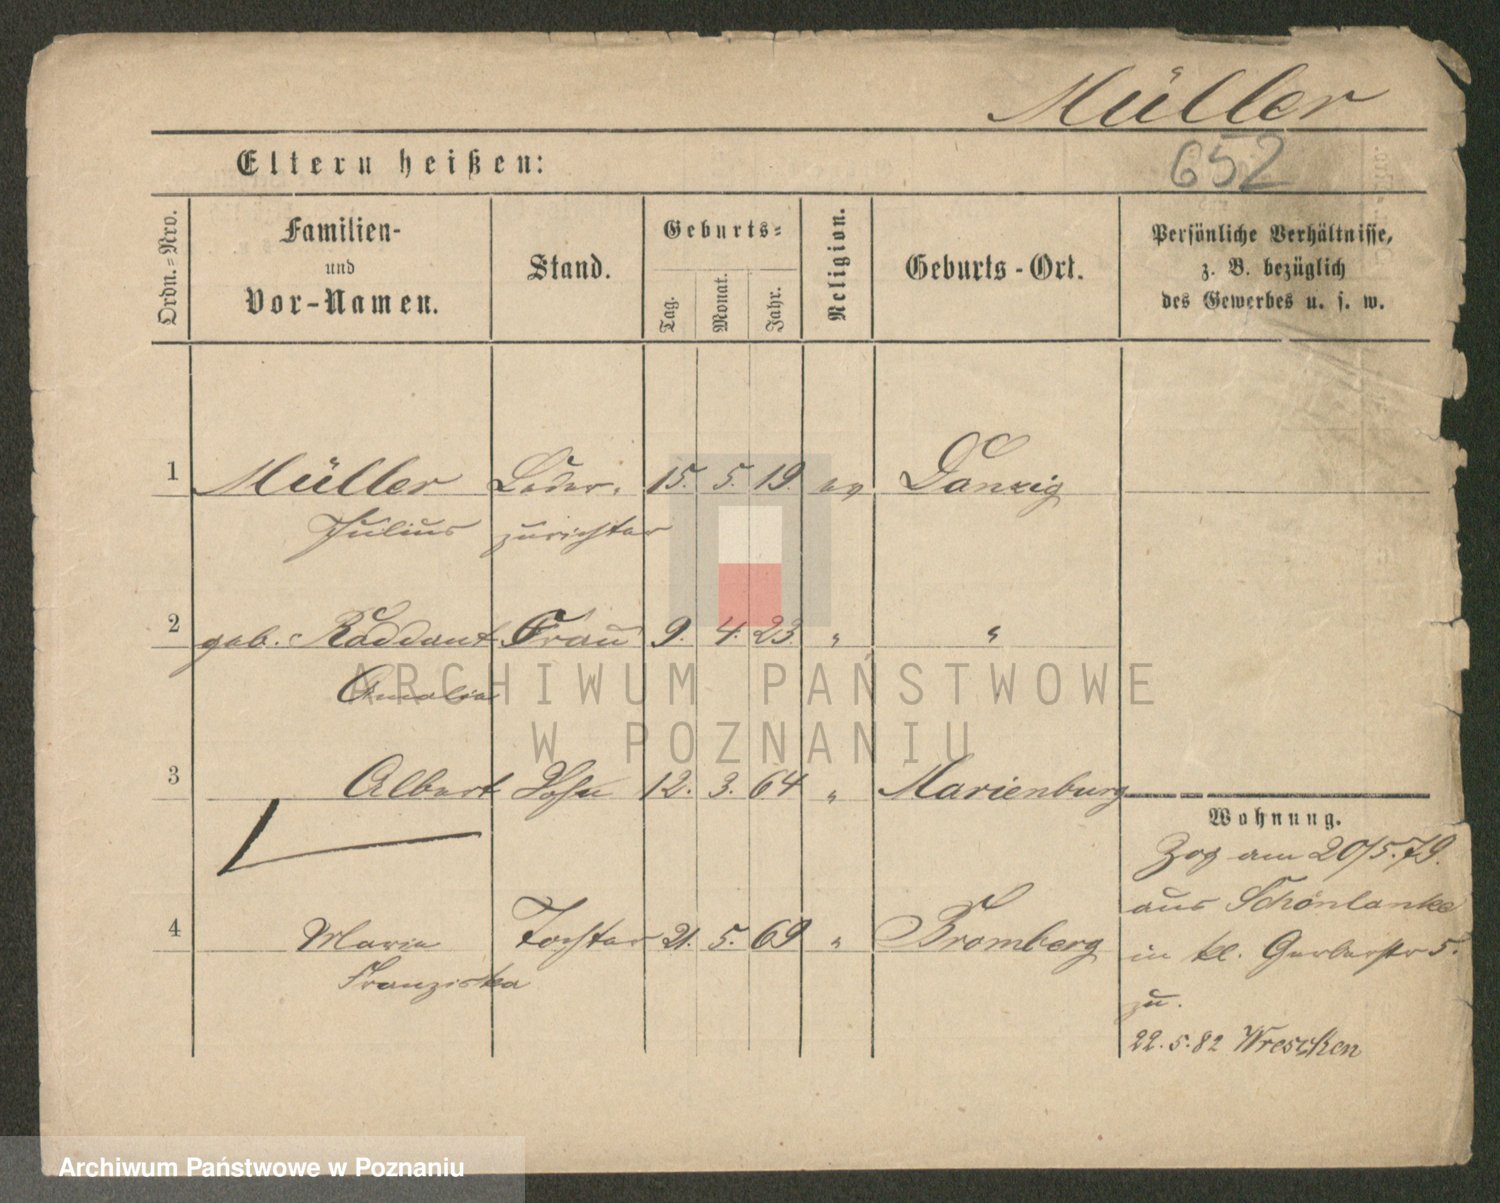 Müller
Eltern heißen:
652
Ordn.-Nro.
Familien-
und
Vor-Namen.
Stand.
Geburts-
Tag.
Monat.
Jahr.
Religion.
Geburts-Ort.
Persönliche Verhältnisse,
z. B. bezüglich
des Gewerbes u. s. w.
1 Müller Leder- 15. 5. 19. ev Danzig
Julius zurichter
2 geb. Raddant Frau 9. 4. 23. " "
Amalia
3 Albert Sohn 12. 3. 64 " Marienburg
Wohnung.
Zog am 20/5.79.
aus Schönlanke
4 Maria Tochter 21. 5. 69 " Bromberg
in kl. Gerberstr 5.
Franziska
zu.
22.5.82 Wreschen
ARCHIWUM PAŃSTWOWE
W POZNANIU
Archiwum Państwowe w Poznaniu